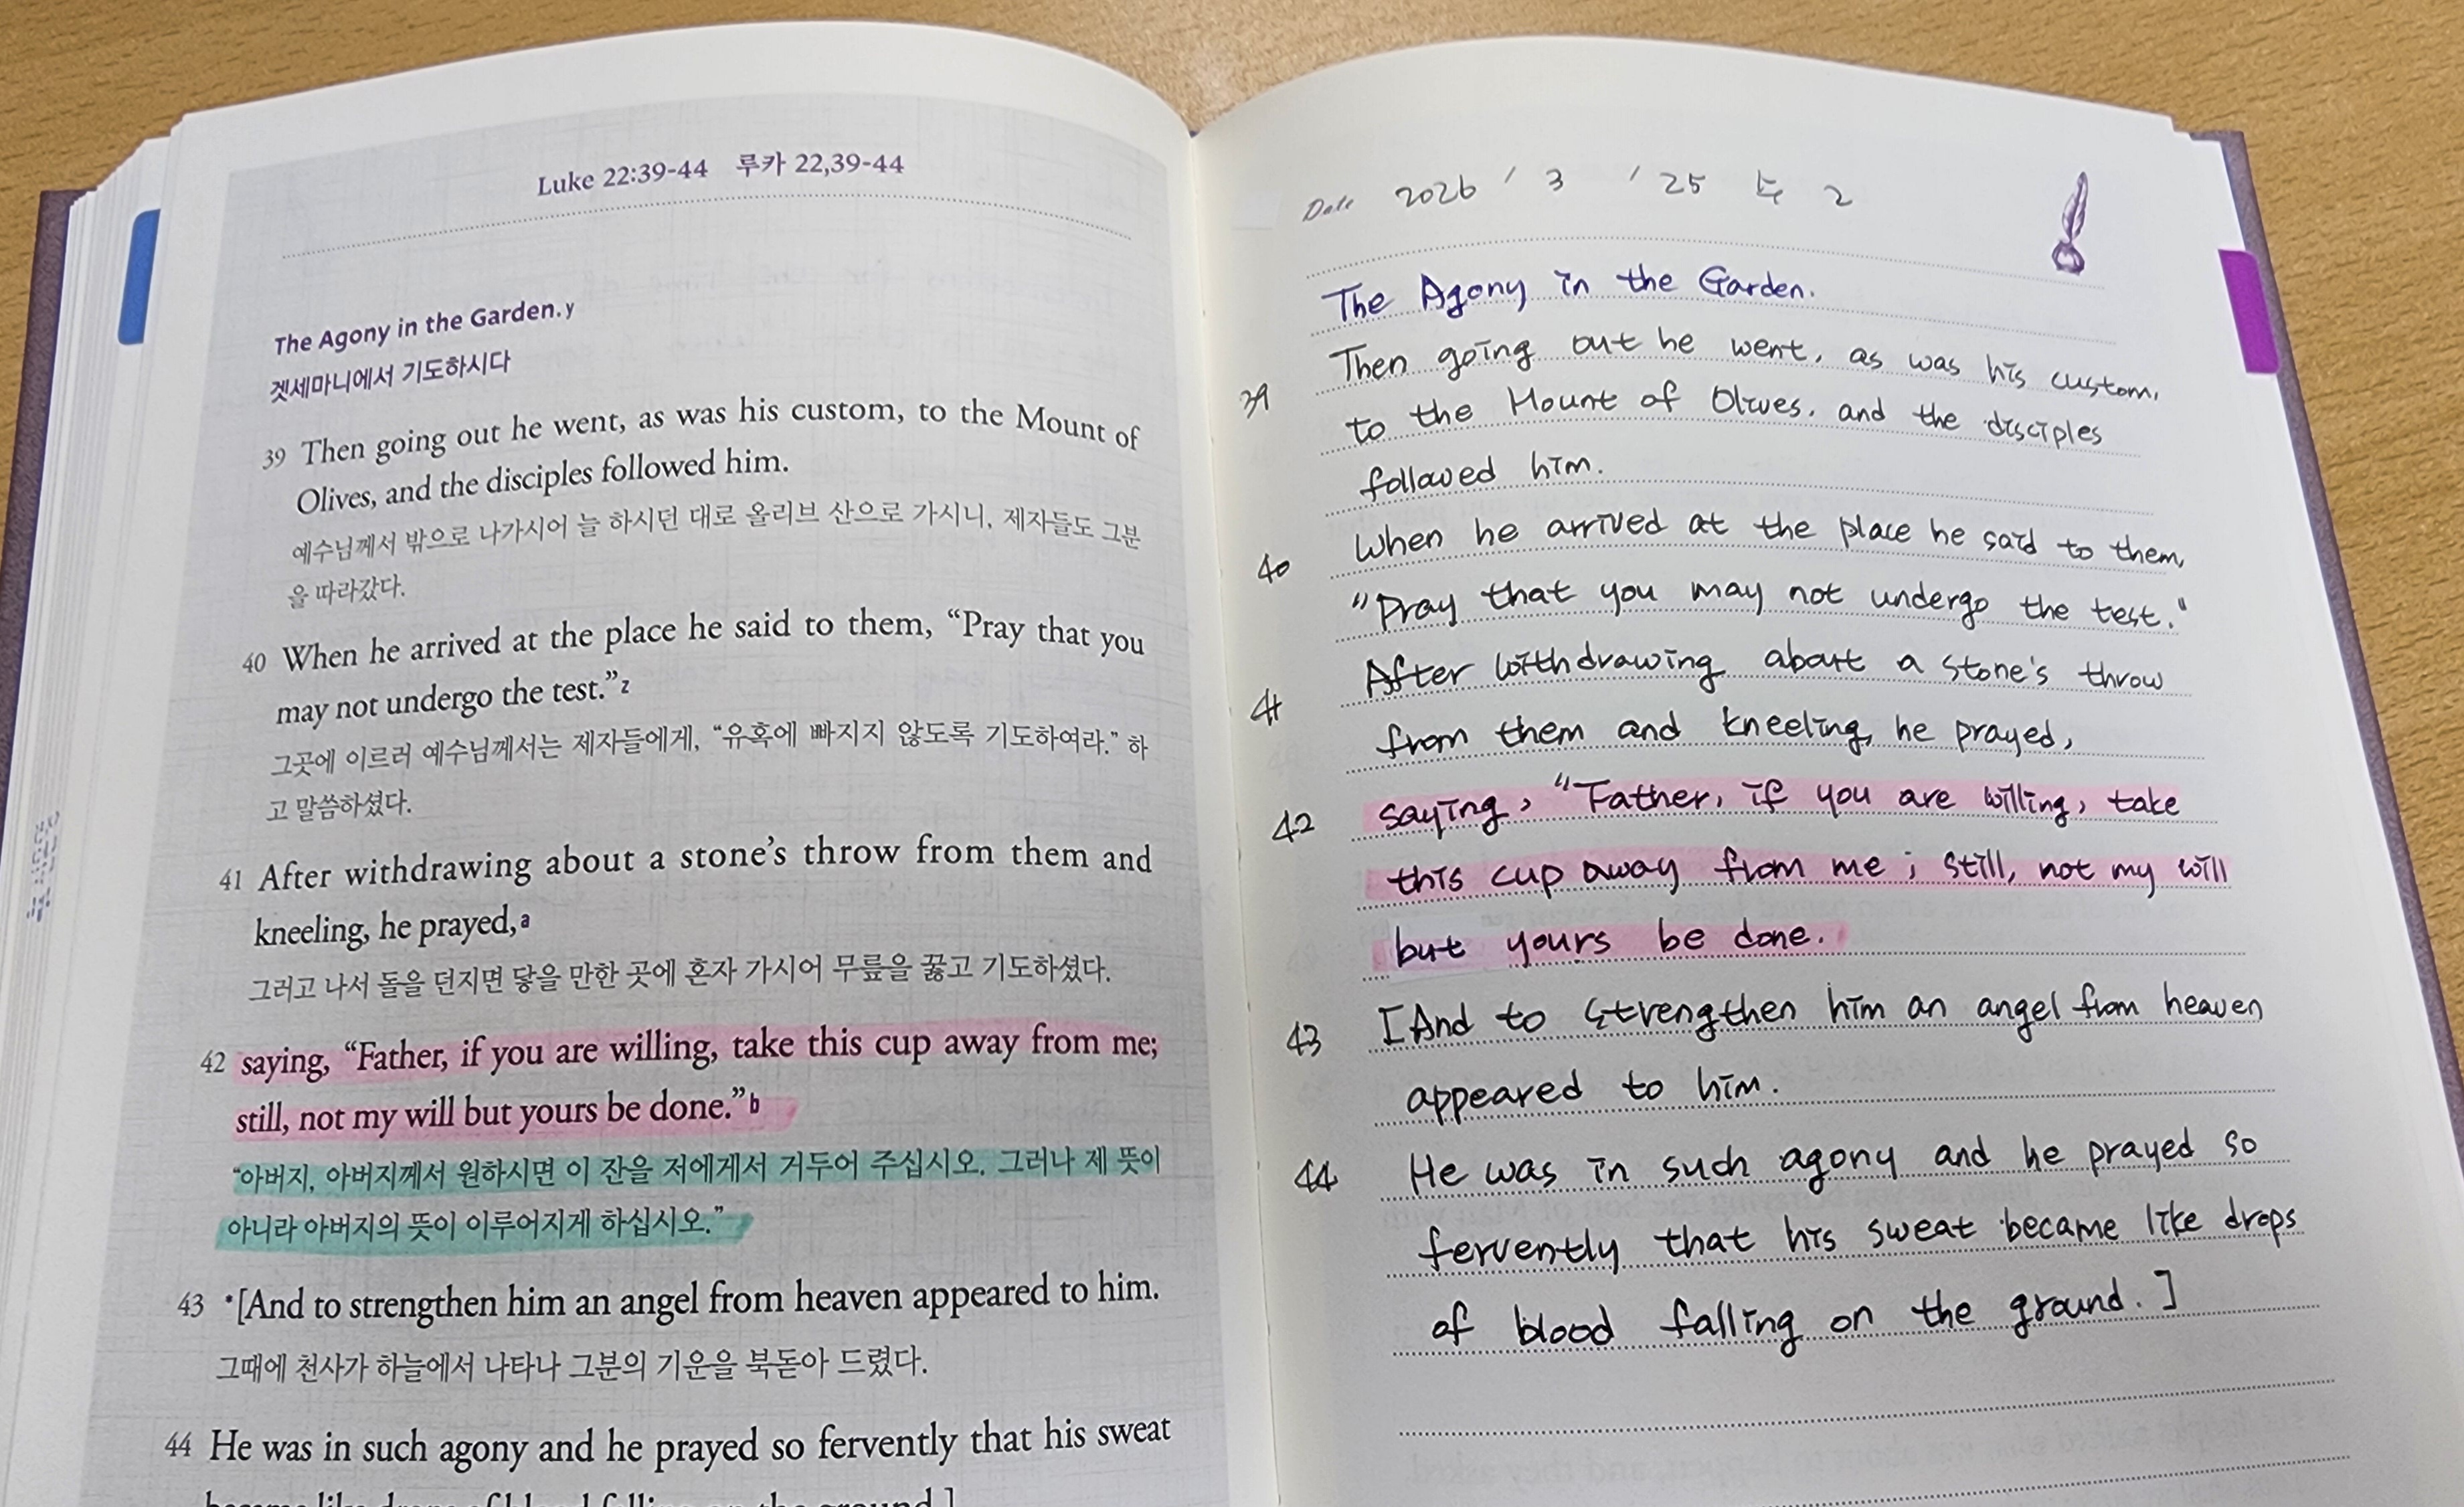 Luke 22:39-44 루카 22,39-44
The Agony in the Garden.y
겟세마니에서 기도하시다
39 Then going out he went, as was his custom, to the Mount of
Olives, and the disciples followed him.
예수님께서 밖으로 나가시어 늘 하시던 대로 올리브 산으로 가시니, 제자들도 그분
을 따라갔다.
40 When he arrived at the place he said to them, “Pray that you
may not undergo the test.”z
그곳에 이르러 예수님께서는 제자들에게, “유혹에 빠지지 않도록 기도하여라.” 하
고 말씀하셨다.
41 After withdrawing about a stone’s throw from them and
kneeling, he prayed,a
그러고 나서 돌을 던지면 닿을 만한 곳에 혼자 가시어 무릎을 꿇고 기도하셨다.
42 saying, “Father, if you are willing, take this cup away from me;
still, not my will but yours be done.”b
“아버지, 아버지께서 원하시면 이 잔을 저에게서 거두어 주십시오. 그러나 제 뜻이
아니라 아버지의 뜻이 이루어지게 하십시오.”
43 *[And to strengthen him an angel from heaven appeared to him.
그때에 천사가 하늘에서 나타나 그분의 기운을 북돋아 드렸다.
44 He was in such agony and he prayed so fervently that his sweat
became like drops of blood falling on the ground.]
Date 2026 / 3 / 25 수 2
The Agony in the Garden.
39 Then going out he went, as was his custom,
to the Mount of Olives, and the disciples
followed him.
40 When he arrived at the place he said to them,
"Pray that you may not undergo the test."
41 After withdrawing about a stone's throw
from them and kneeling, he prayed,
42 saying, "Father, if you are willing, take
this cup away from me; still, not my will
but yours be done.
43 [And to strengthen him an angel from heaven
appeared to him.
44 He was in such agony and he prayed so
fervently that his sweat became like drops
of blood falling on the ground.]